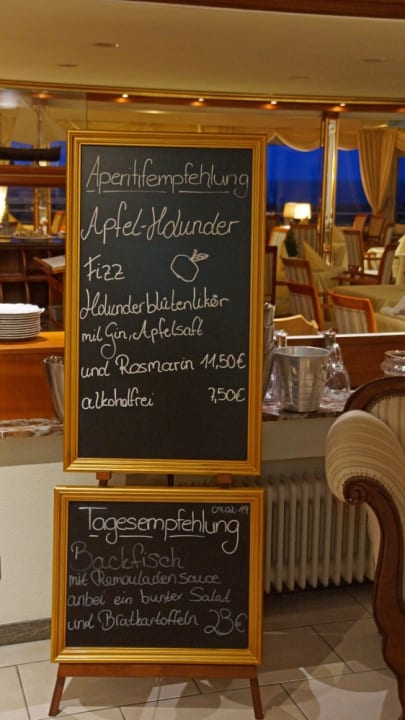 Aperitifempfehlung
Apfel-Holunder
Fizz
Holunderblütenlikör
mit Gin, Apfelsaft
und Rosmarin 11,50€
alkoholfrei 7,50€
09.02.19
Tagesempfehlung
Backfisch
mit Remouladen Sauce
anbei ein bunter Salat
und Bratkartoffeln 23€